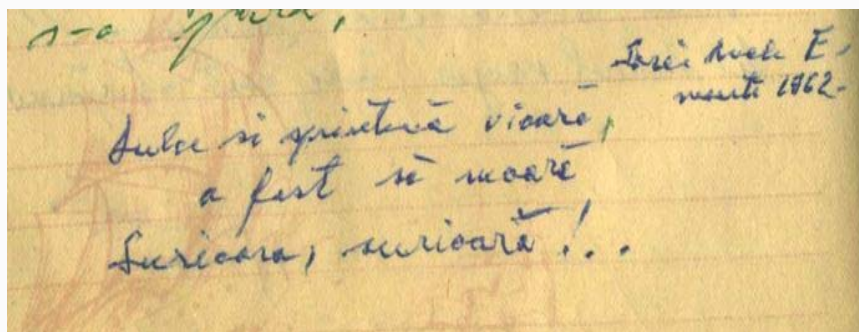 s-a
Surei
moarte 1962-
Dulce si sprintenă vioară,
a fost să moară
Surioara, surioară!..